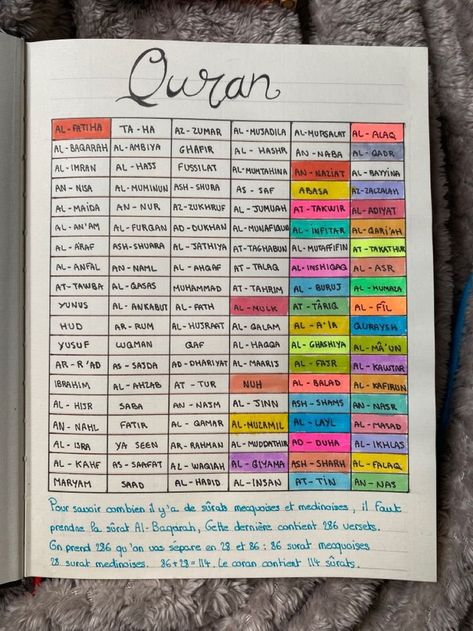 Quran
AL-FATIHA TA-HA AZ-ZUMAR AL-MUJADILA AL-MURSALAT AL-ALAQ
AL-BAQARAH AL-AMBIYA GHAFIR AL-HASHR AN-NABA AL-QADR
AL-IMRAN AL-HAJJ FUSSILAT AL-MUMTAHINA AN-NAZIAT AL-BAYYINA
AN-NISA AL-MUMINUN ASH-SHURA AS-SAF ABASA AZ-ZALZALAH
AL-MAIDA AN-NUR AZ-ZUKHRUF AL-JUMUAH AT-TAKWIR AL-ADIYAT
AL-AN'AM AL-FURQAN AD-DUKHAN AL-MUNAFIQUN AL-INFITAR AL-QARI'AH
AL-ARAF ASH-SHUARA AL-JATHIYA AT-TAGHABUN AL-MUTAFFIFIN AT-TAKATHUR
AL-ANFAL AN-NAML AL-AHQAF AT-TALAQ AL-INSHIQAQ AL-ASR
AT-TAWBA AL-QASAS MUHAMMAD AT-TAHRIM AL-BURUJ AL-HUMAZA
YUNUS AL-ANKABUT AL-FATH AL-MULK AT-TÂRIQ AL-FÎL
HUD AR-RUM AL-HUJRAAT AL-QALAM AL-A'LA QURAYSH
YUSUF LUQMAN QAF AL-HAQQA AL-GHASHIYA AL-MÂ'UN
AR-R'AD AS-SAJDA AD-DHARIYAT AL-MAARIJ AL-FAJR AL-KAWTAR
IBRAHIM AL-AHZAB AT-TUR NUH AL-BALAD AL-KAFIRUN
AL-HIJR SABA AN-NAJM AL-JINN ASH-SHAMS AN-NASR
AN-NAHL FATIR AL-QAMAR AL-MUZAMIL AL-LAYL AL-MASAD
AL-ISRA YA SEEN AR-RAHMAN AL-MUDDATHIR AD-DUHA AL-IKHLAS
AL-KAHF AS-SAAFAT AL-WAQIAH AL-QIYAMA ASH-SHARH AL-FALAQ
MARYAM SAAD AL-HADID AL-INSAN AT-TIN AN-NAS
Pour savoir combien il y'a de sûrats mecquoises et medinoises, il faut
prendre la sûrat Al-Baqarah, Cette dernière contient 286 versets.
On prend 286 qu'on vas sépare en 28 et 86 : 86 surat mecquoises
28 surat medinoises. 86+28=114. Le coran contient 114 sûrats.